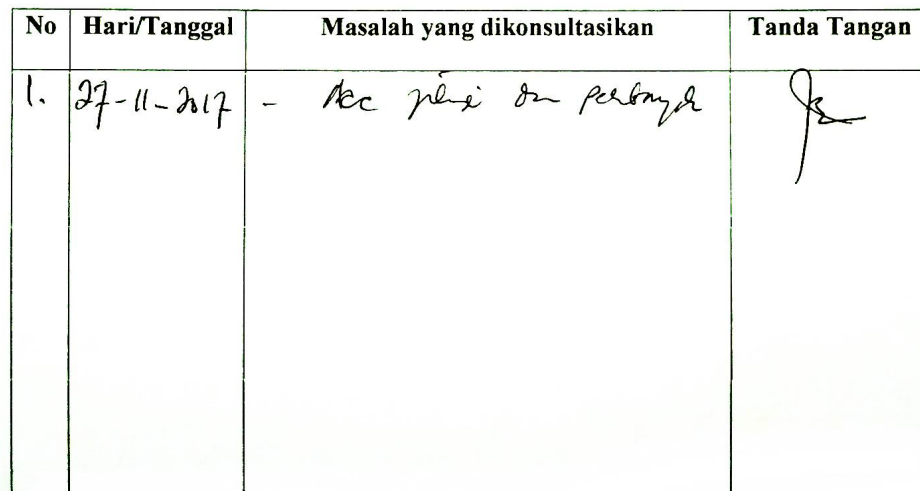 No Hari/Tanggal Masalah yang dikonsultasikan Tanda Tangan
1. 27-11-2017 - Acc dan perbanyak